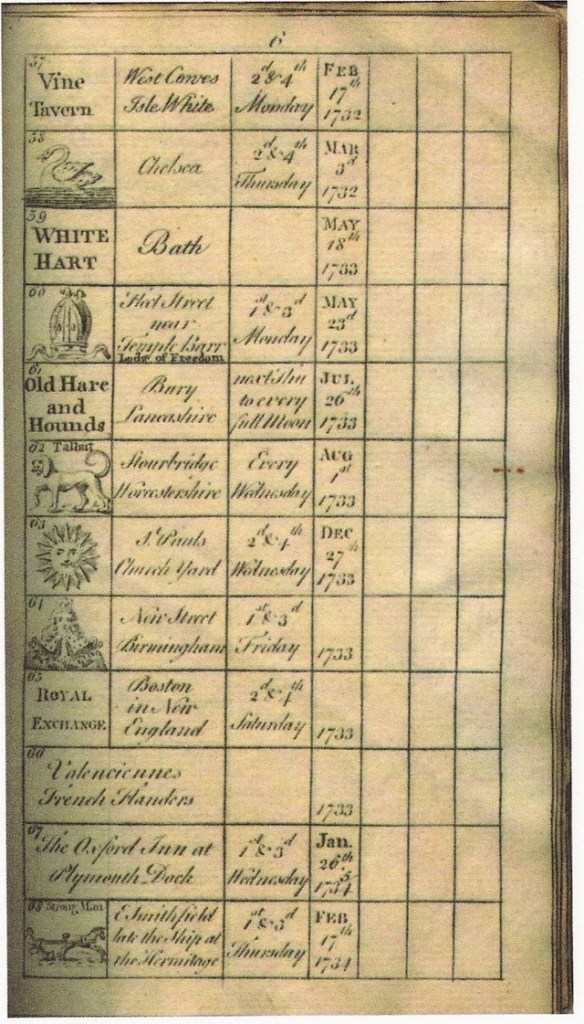 6
57
Vine
Tavern
West Cowes
Isle White
2d & 4th
Monday
FEB
17th
1732
58
Chelsea
2d & 4th
Thursday
MAR
3d
1732
59
WHITE
HART
Bath
MAY
18th
1733
60
Fleet Street
near
Temple Barr
Lodge of Freedom
1st & 3d
Monday
MAY
23d
1733
61
Old Hare
and
Hounds
Bury
Lancashire
next Thu
to every
full Moon
JUL
26th
1733
62 Talbut
Stourbridge
Worcestershire
Every
Wednesday
AUG
1st
1733
63
St Pauls
Church Yard
2d & 4th
Wednesday
DEC
27th
1733
64
New Street
Birmingham
1st & 3d
Friday
1733
65
ROYAL
EXCHANGE
Boston
in New
England
2d & 4th
Saturday
1733
66
Valenciennes
French Flanders
1733
67
The Oxford Inn at
Plymouth Dock
1st & 3d
Wednesday
Jan.
26th
1734
68 Strong Man
E Smithfield
late the Ship at
the Hermitage
1st & 3d
Thursday
FEB
17th
1734